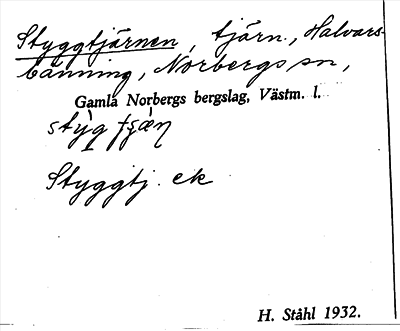 Styggtjärnen, tjärn., Halvars-
bänning, Norbergs sn,
Gamla Norbergs bergslag, Västm. l.
Styggtj. ek
H. Ståhl 1932.